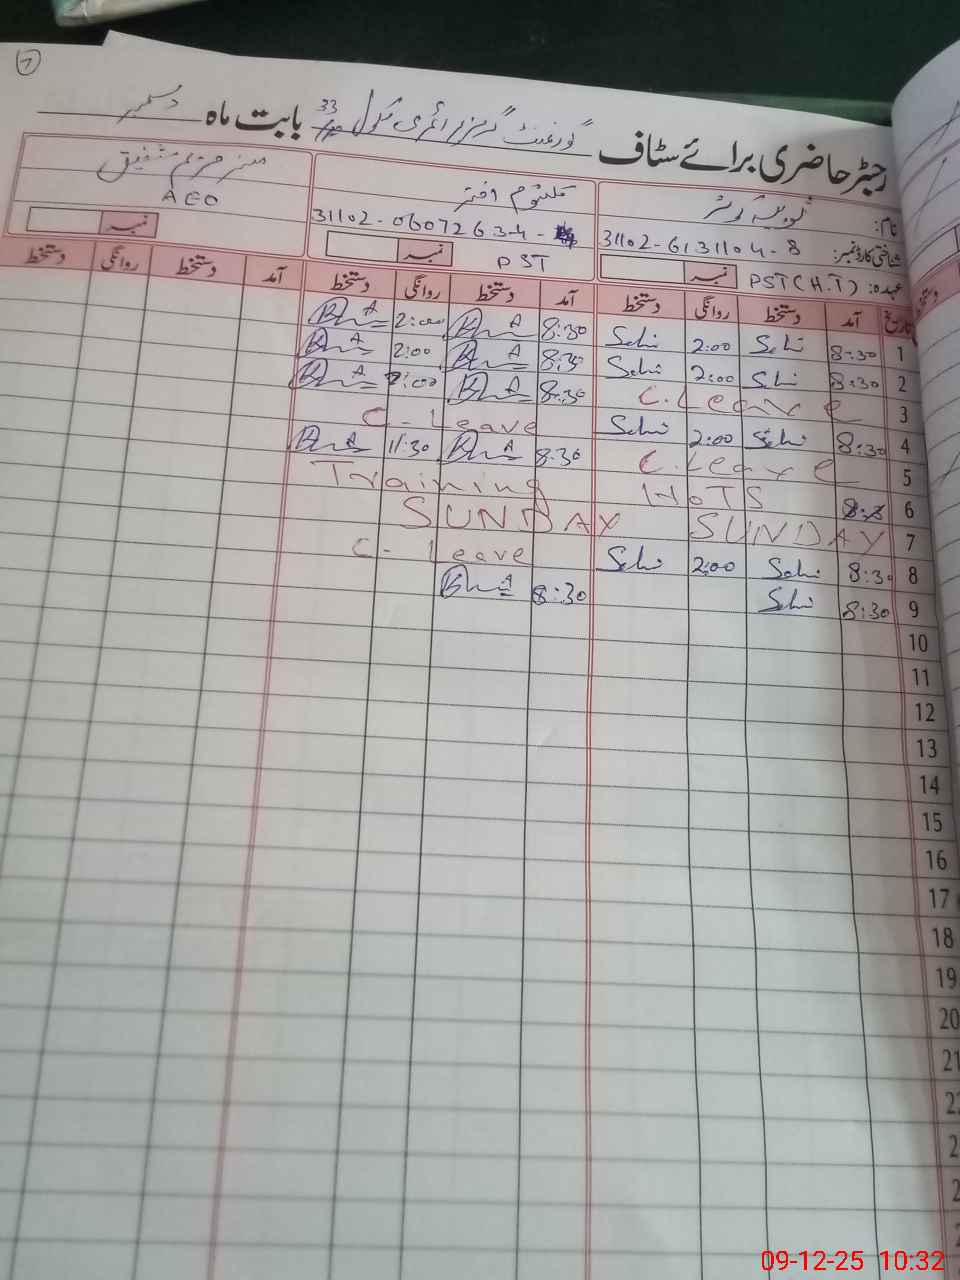 7
رجسٹر حاضری برائے سٹاف گورنمنٹ گرلز پرائمری سکول 33 بابت ماہ دسمبر
نام:
کلثوم اختر
AEO
شناختی کارڈ نمبر: 31102-6131104-8
31102-0607263-4-
عہدہ: PST(H.T) نمبر
PST نمبر
نمبر
تاریخ آمد دستخط روانگی دستخط آمد دستخط روانگی دستخط آمد دستخط روانگی دستخط
1 8:30 2:00 8:30 2:00
2 8:30 2:00 8:30 2:00
3 C.Leave 8:30 2:00
4 8:30 2:00 C-Leave
5 C.Leave 8:30 11:30
6 HoTS Training
7 SUNDAY SUNDAY
8 8:30 2:00 C-Leave
9 8:30 8:30
10
11
12
13
14
15
16
17
18
19
20
21
09-12-25 10:32